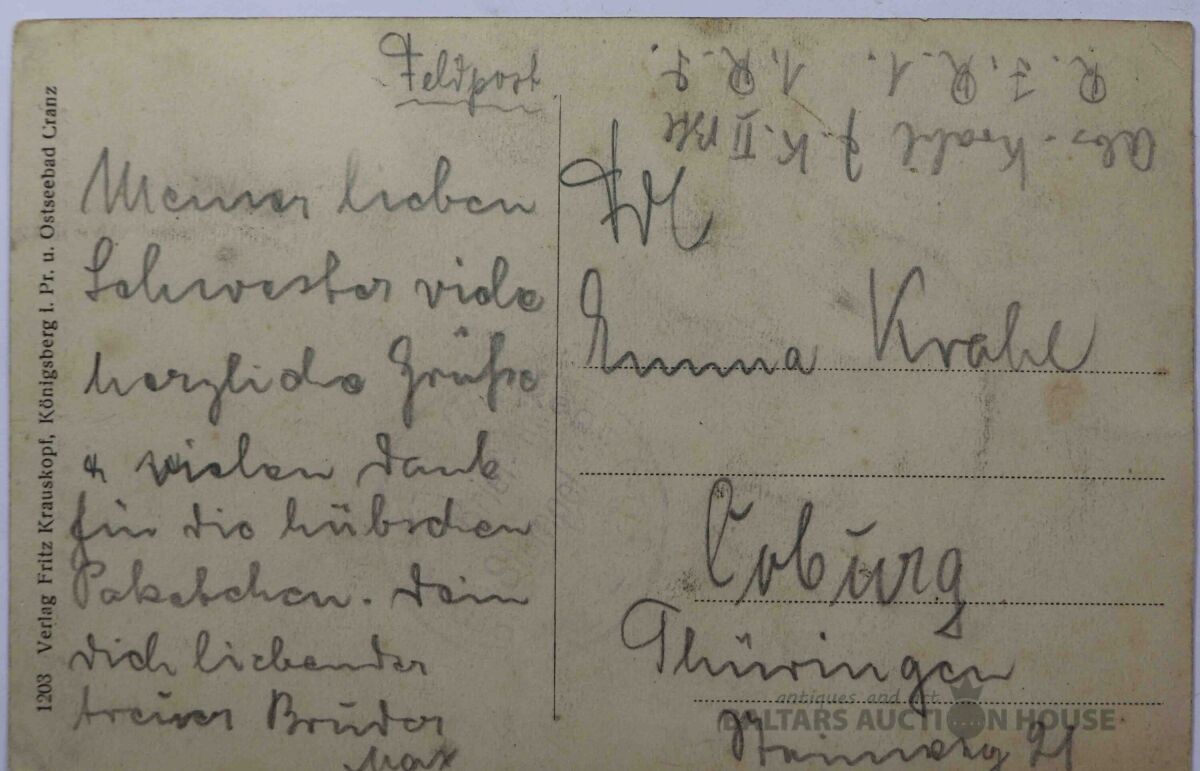 Feldpost
Meiner lieben
Schwester viele
herzliche Grüße
u vielen Dank
für die hübschen
Paketchen. Dein
dich liebender
treuer Bruder
Max
Abs. Krahl II
R. I. R. 1. 1. R. D.
Frl
Emma Krahl
Coburg
Thüringen
Steinweg 21
1203 Verlag Fritz Krauskopf, Königsberg i. Pr. u. Ostseebad Cranz
antiques and art
BALTARS AUCTION HOUSE